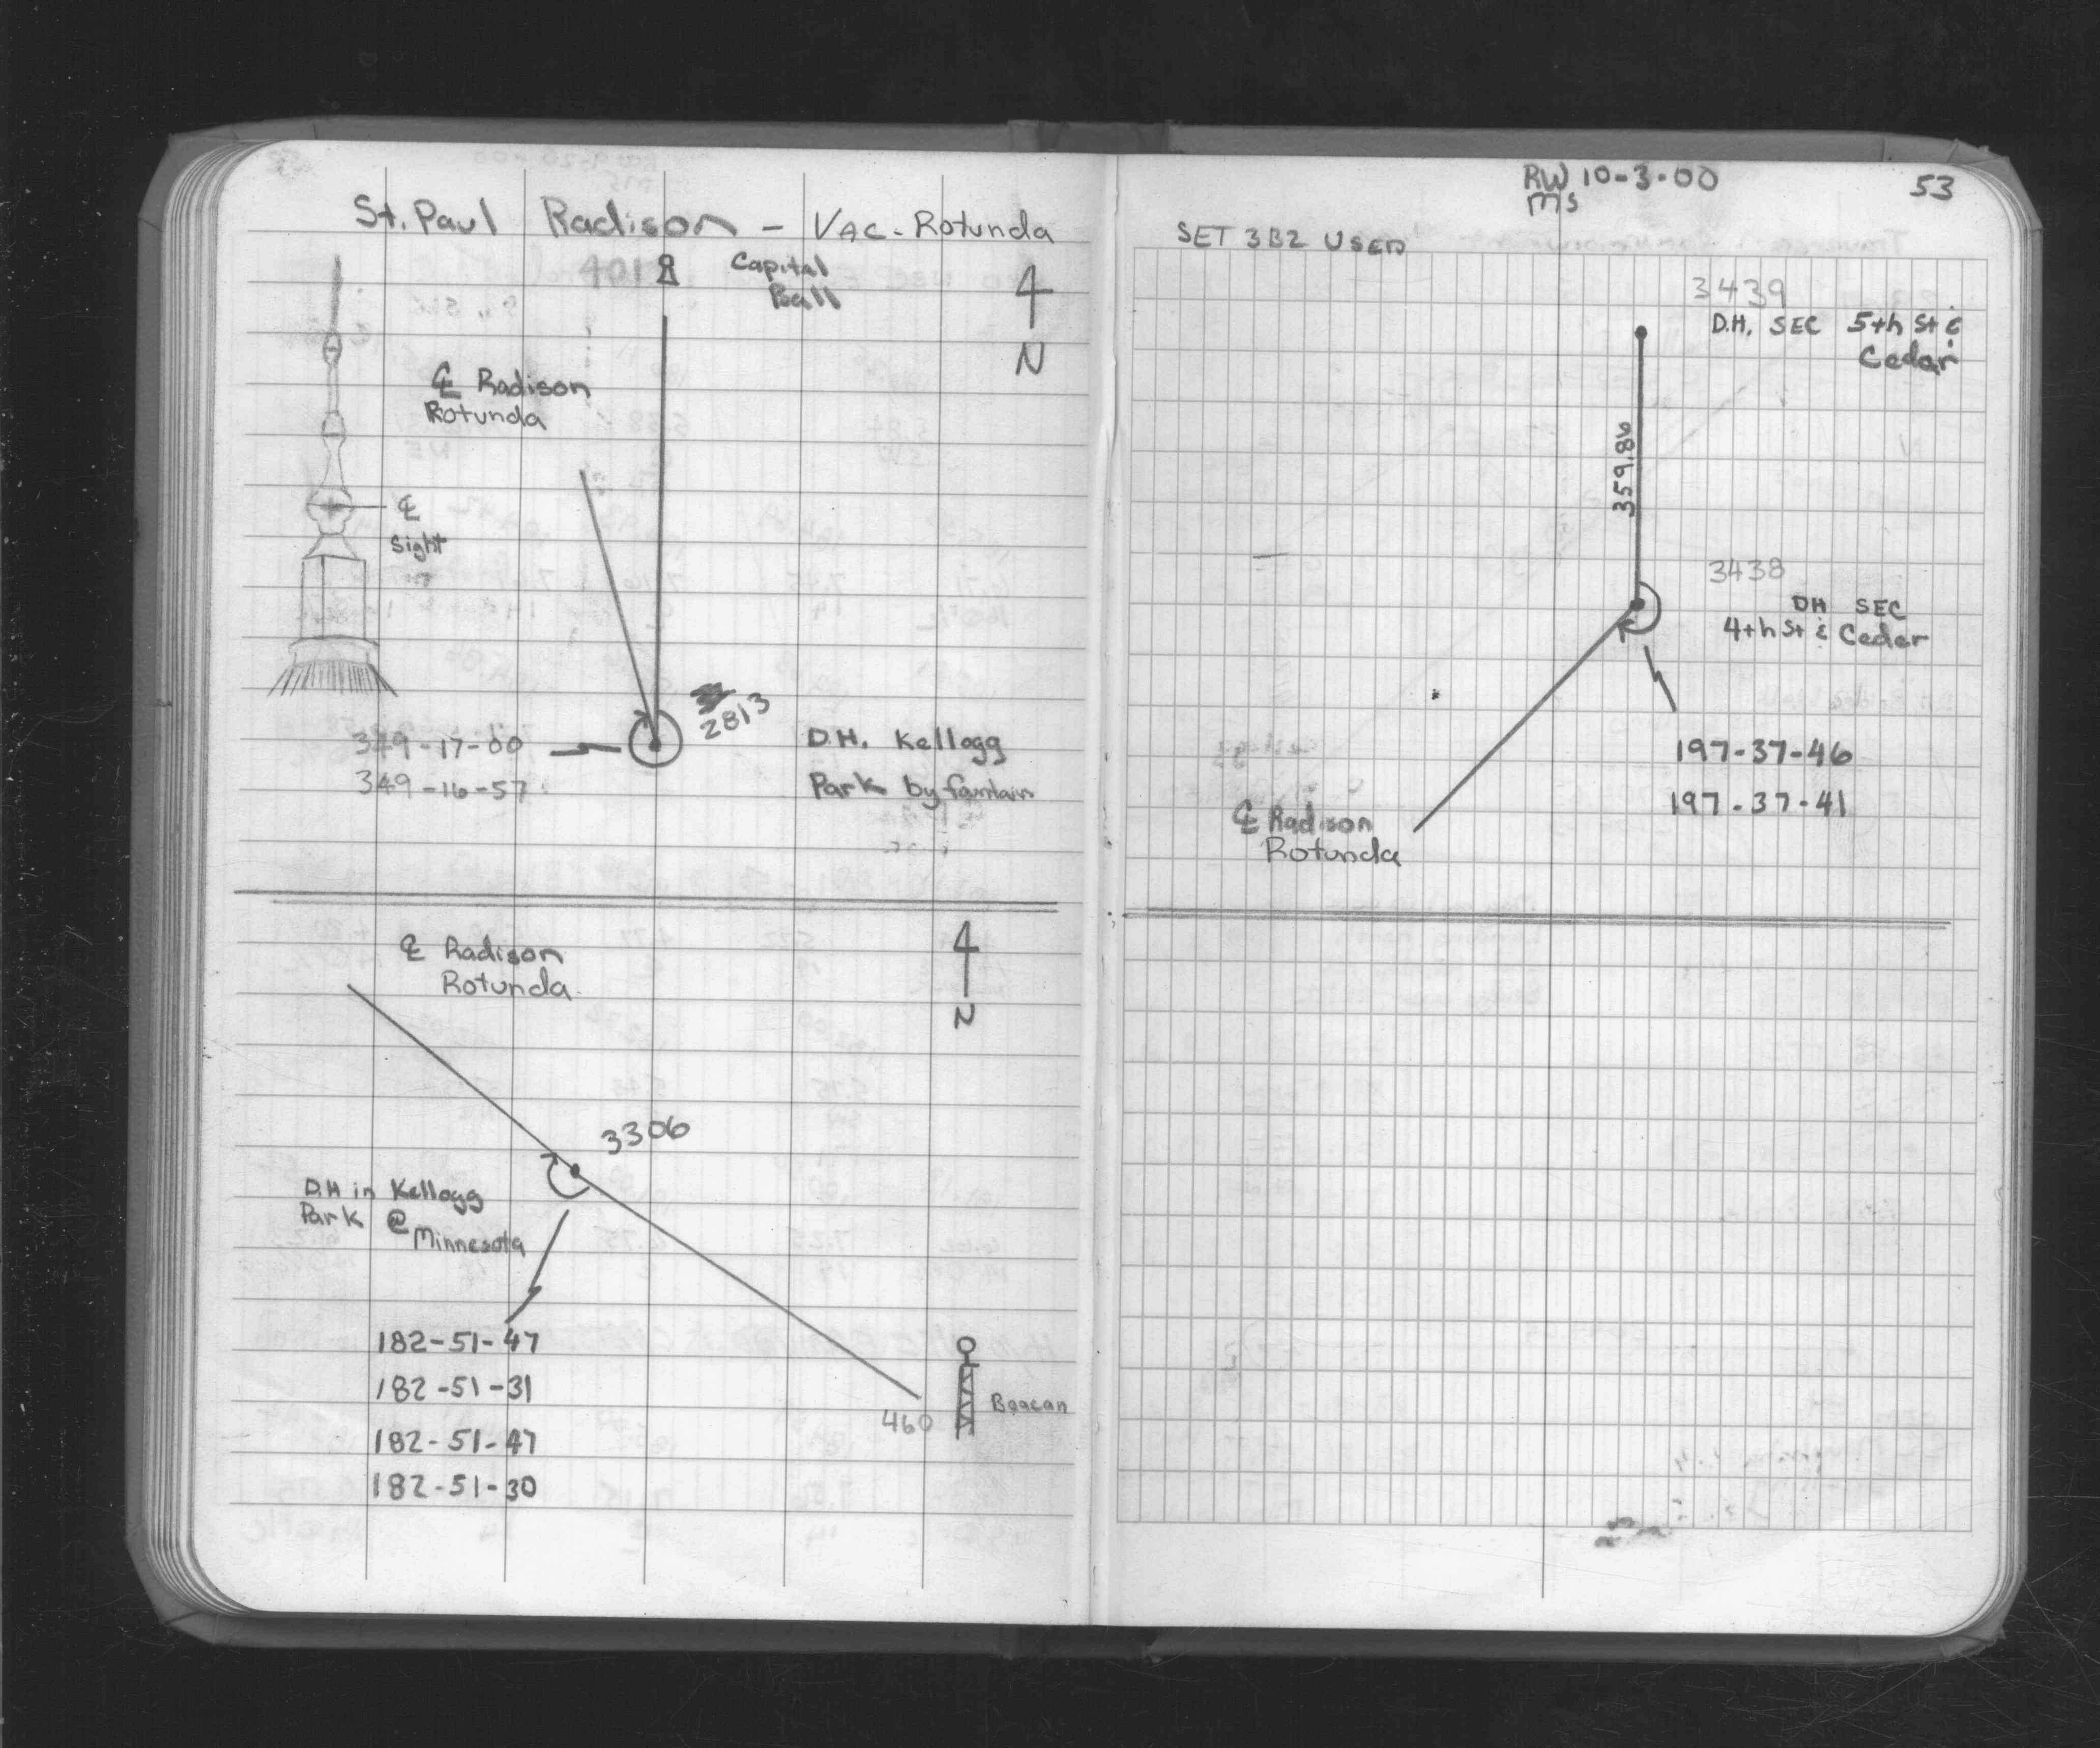 St. Paul Radison - Vac. Rotunda
401
Capital
Ball
4
N
℄ Radison
Rotunda
℄
Sight
2813
349-17-00
349-16-57
D.H. Kellogg
Park by
℄ Radison
Rotunda
4
N
3306
D.H in Kellogg
Park @
Minnesota
182-51-47
182-51-31
182-51-47
182-51-30
460
Beacan
RW 10-3-00
MS
53
SET 3B2 USED
3439
D.H. SEC 5th St &
Cedar
359.86
3438
DH SEC
4th St & Cedar
197-37-46
197-37-41
℄ Radison
Rotunda